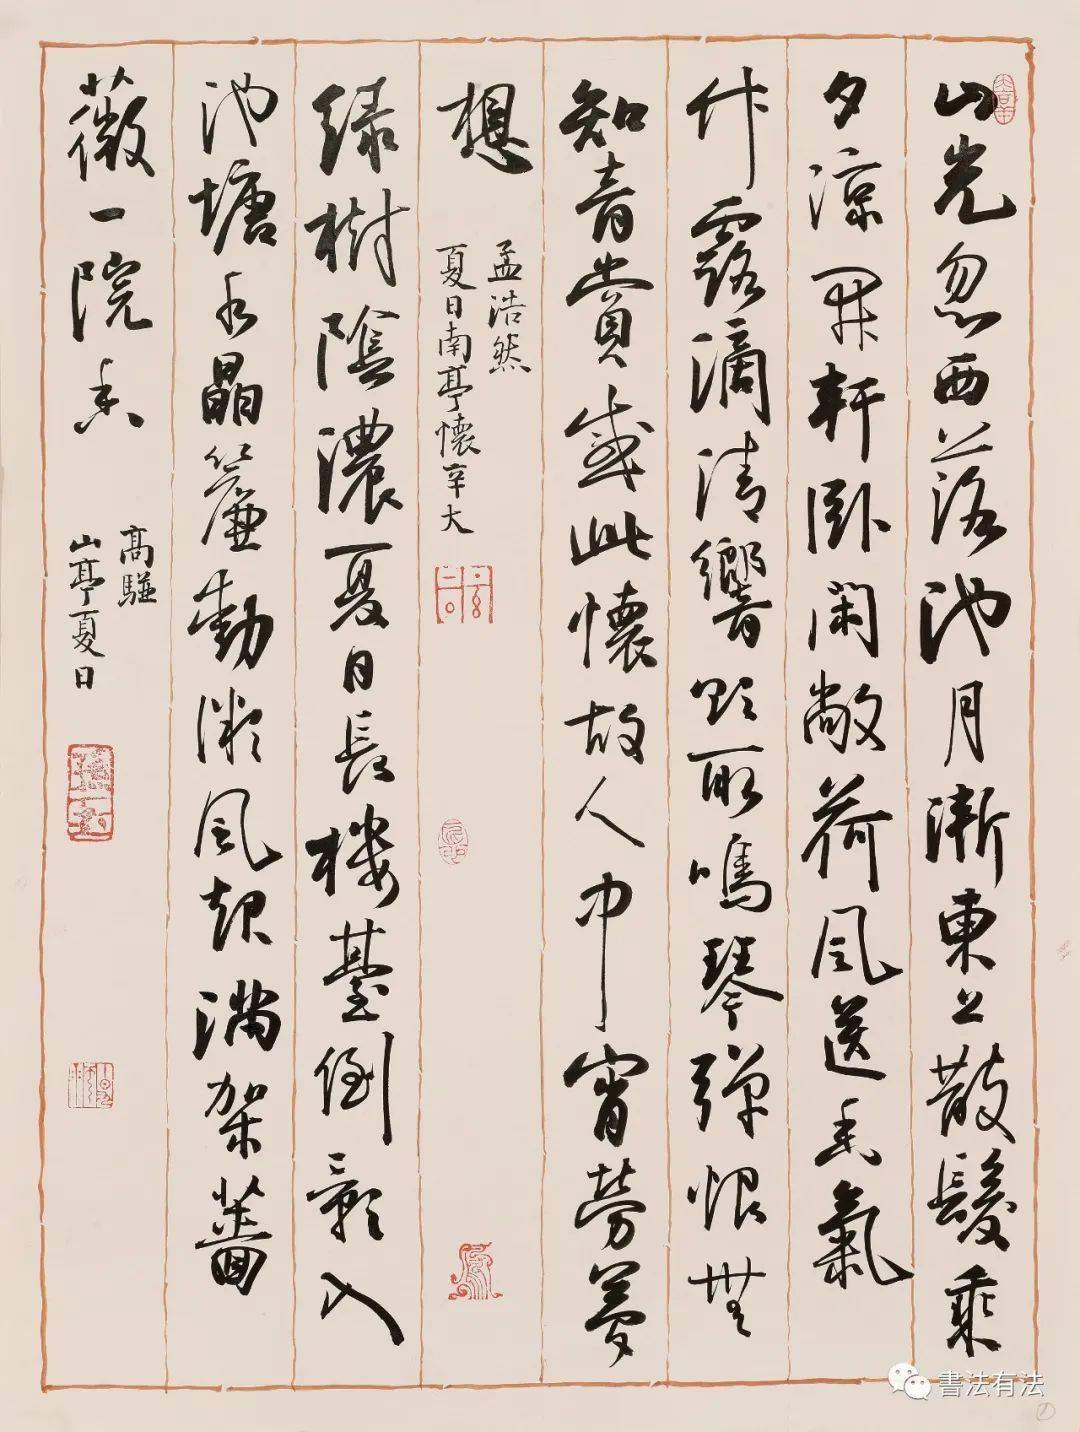 山光忽西落池月漸東上散髮乘
夕涼開軒卧閑敞荷風送香氣
竹露滴清響欲取鳴琴彈恨無
知音賞感此懷故人中宵勞夢
想
孟浩然
夏日南亭懷辛大
綠樹陰濃夏日長樓臺倒影入
池塘水晶簾動微風起滿架薔
薇一院香
高駢
山亭夏日
書法有法